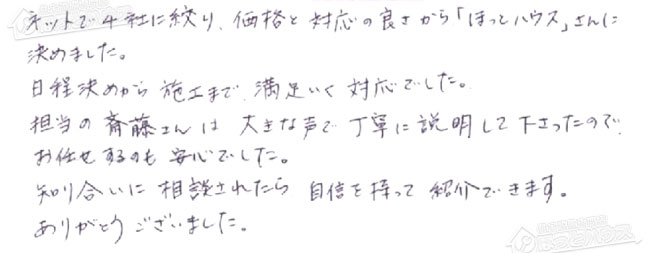 ネットで4社に絞り、価格と対応の良さから「ほっとハウス」さんに
決めました。
日程決めから施工まで、満足いく対応でした。
担当の斎藤さんは大きな声で丁寧に説明して下さったので、
お任せするのも安心でした。
知り合いに相談されたら自信を持って紹介できます。
ありがとうございました。